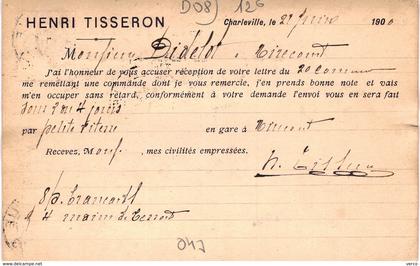 D08) 126
HENRI TISSERON
Charleville, le 21 190
Monsieur Didelot à Mirecourt
J'ai l'honneur de vous accuser réception de votre lettre du 20 courant
me remettant une commande dont je vous remercie, j'en prends bonne note et vais
m'en occuper sans retard, conformément à votre demande l'envoi vous en sera fait
sous 3 ou 4 jours
par petite vitesse en gare à Mirecourt
Recevez, Monsr , mes civilités empressées.
H. Tisseron
4